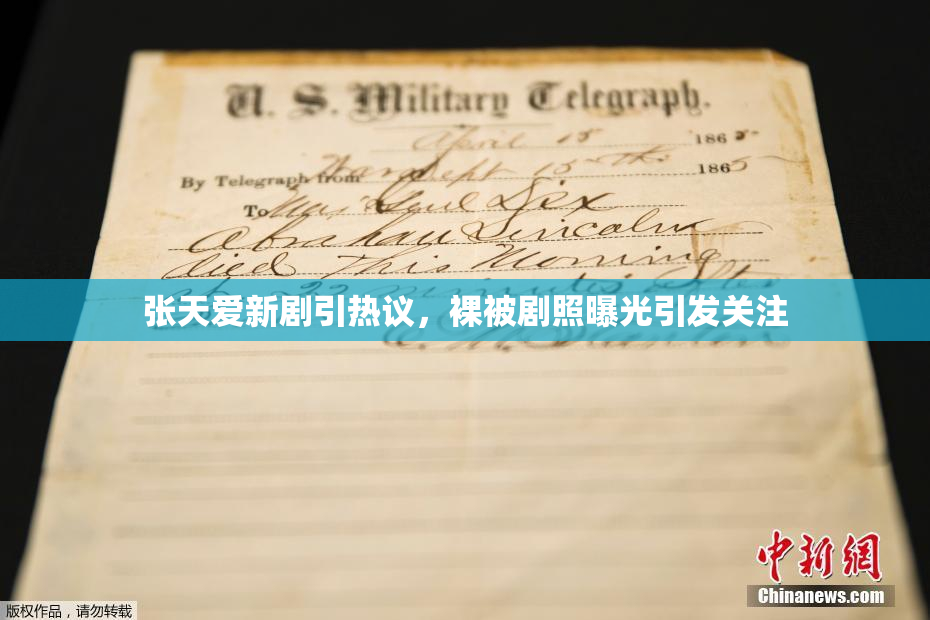 U. S. Military Telegraph.
April 15 1865.
By Telegraph from War Dept 15th 1865
To Maj Genl Dix
Abraham Lincoln
died This Morning
at 22 minutes after
张天爱新剧引热议，裸被剧照曝光引发关注
E. M. Stanton
中新网
Chinanews.com
版权作品，请勿转载